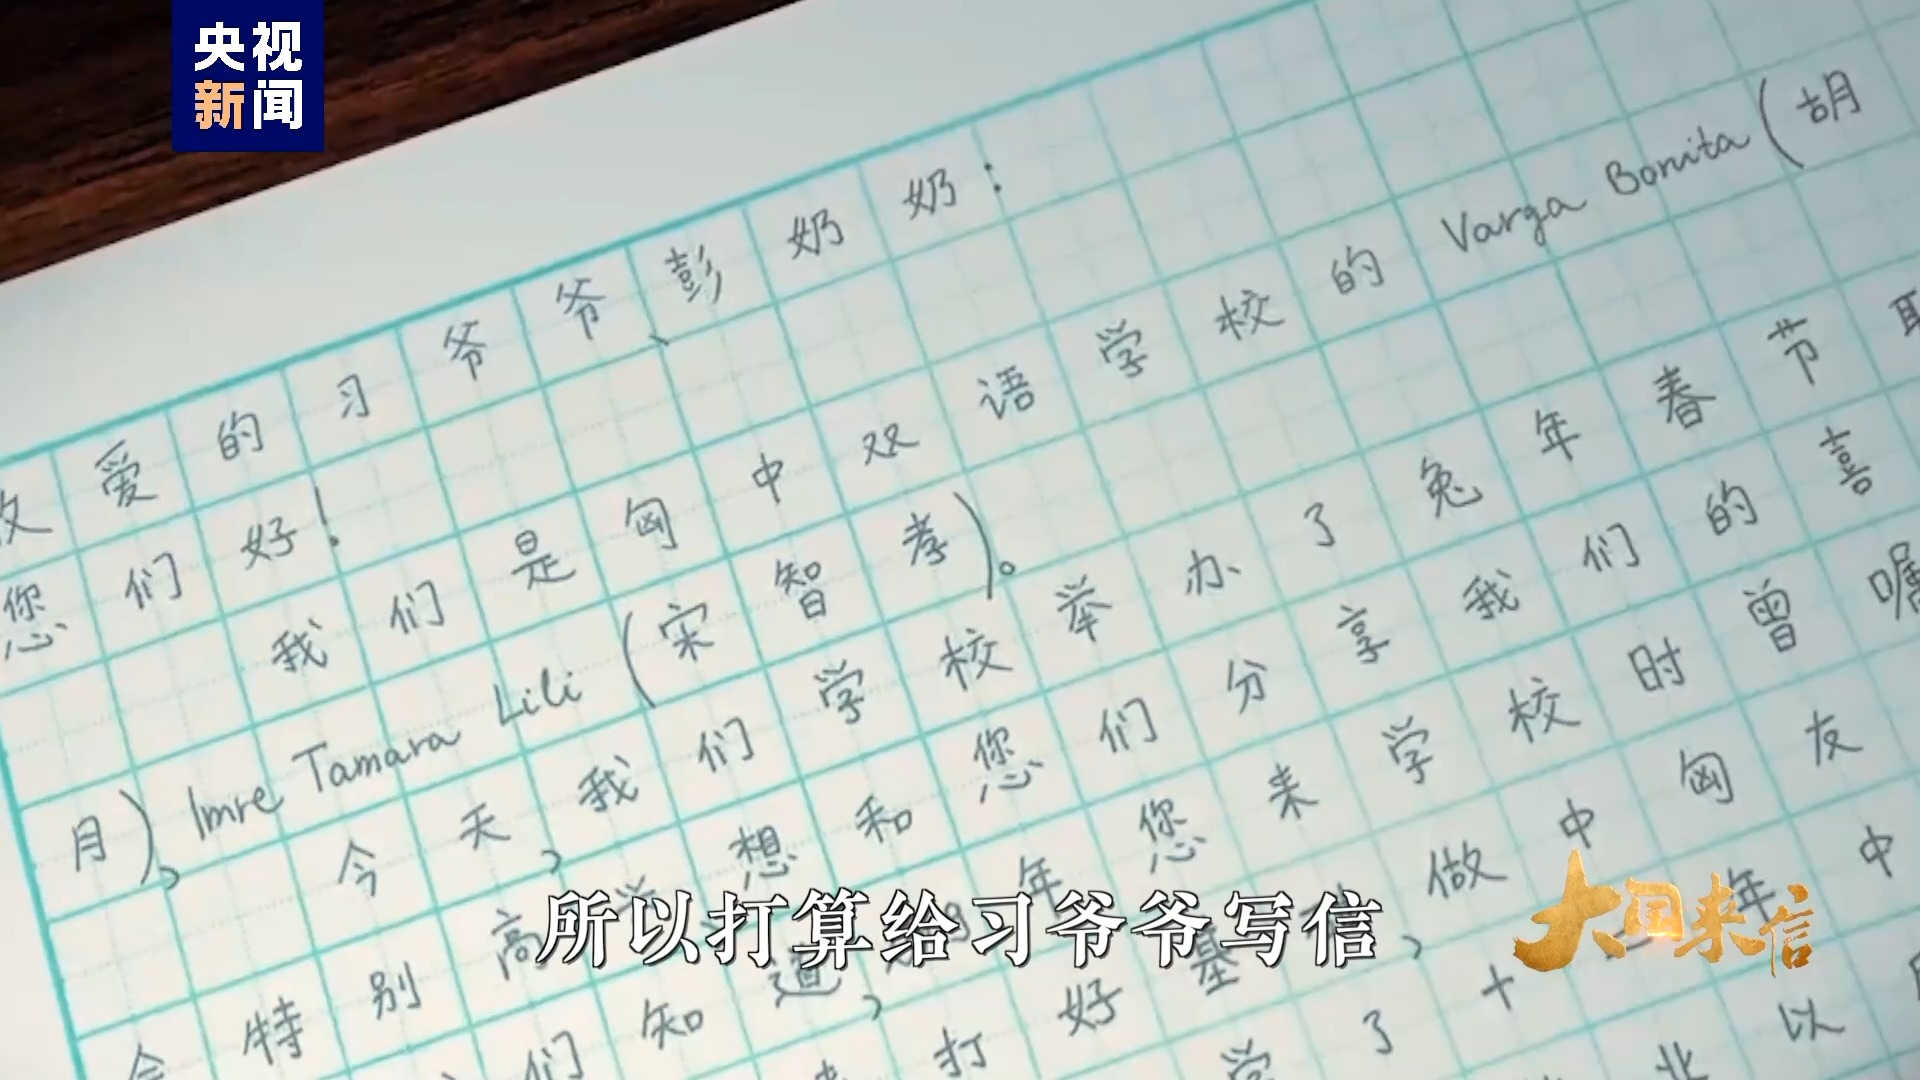 央视
新闻
敬爱的习爷爷、彭奶奶:
您们好!
我们是匈中双语学校的Varga Bonita(胡
月)、Imre Tamara Lili(宋智孝)。
今天,我们学校举办了兔年春节
特别高 想和您们分享我们的喜
们知道, 年您来学校时曾嘱
打好基 ,做中匈友
学了十 年中
以
所以打算给习爷爷写信
大国来信